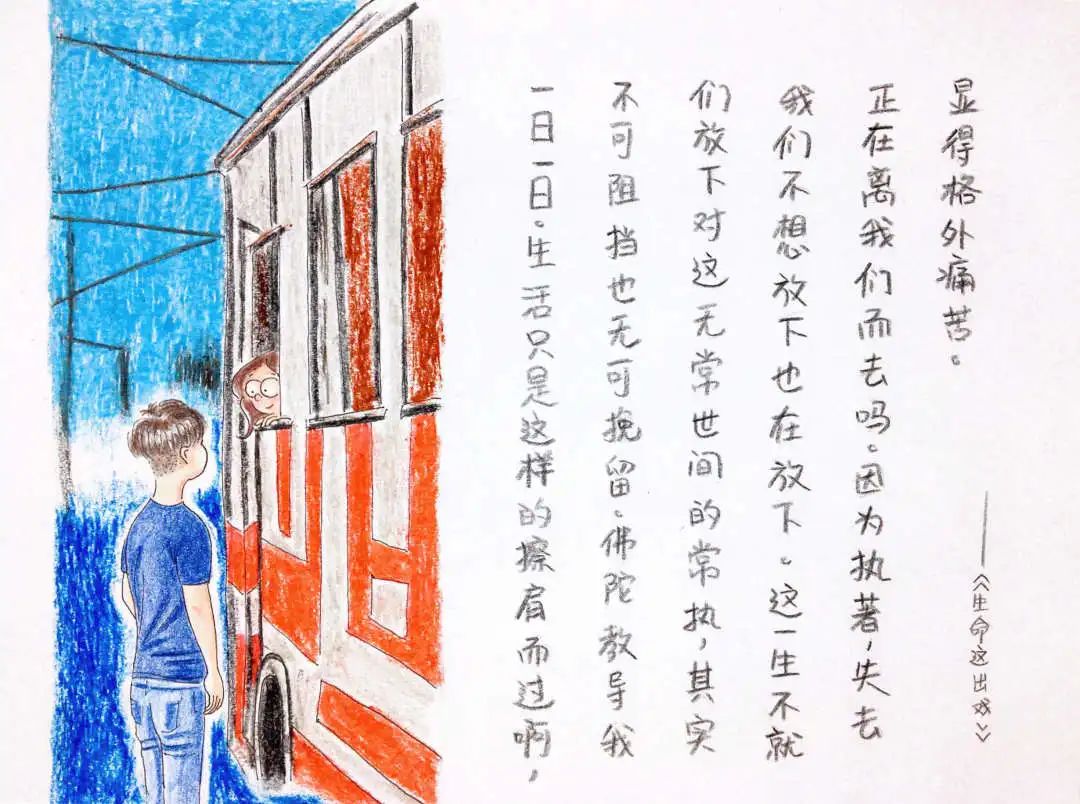 一日一日。生活只是这样的擦肩而过啊，
不可阻挡也无可挽留。佛陀教导我
们放下对这无常世间的常执，其实
我们不想放下也在放下。这一生不就
正在离我们而去吗。因为执著，失去
显得格外痛苦。
——《生命这出戏》